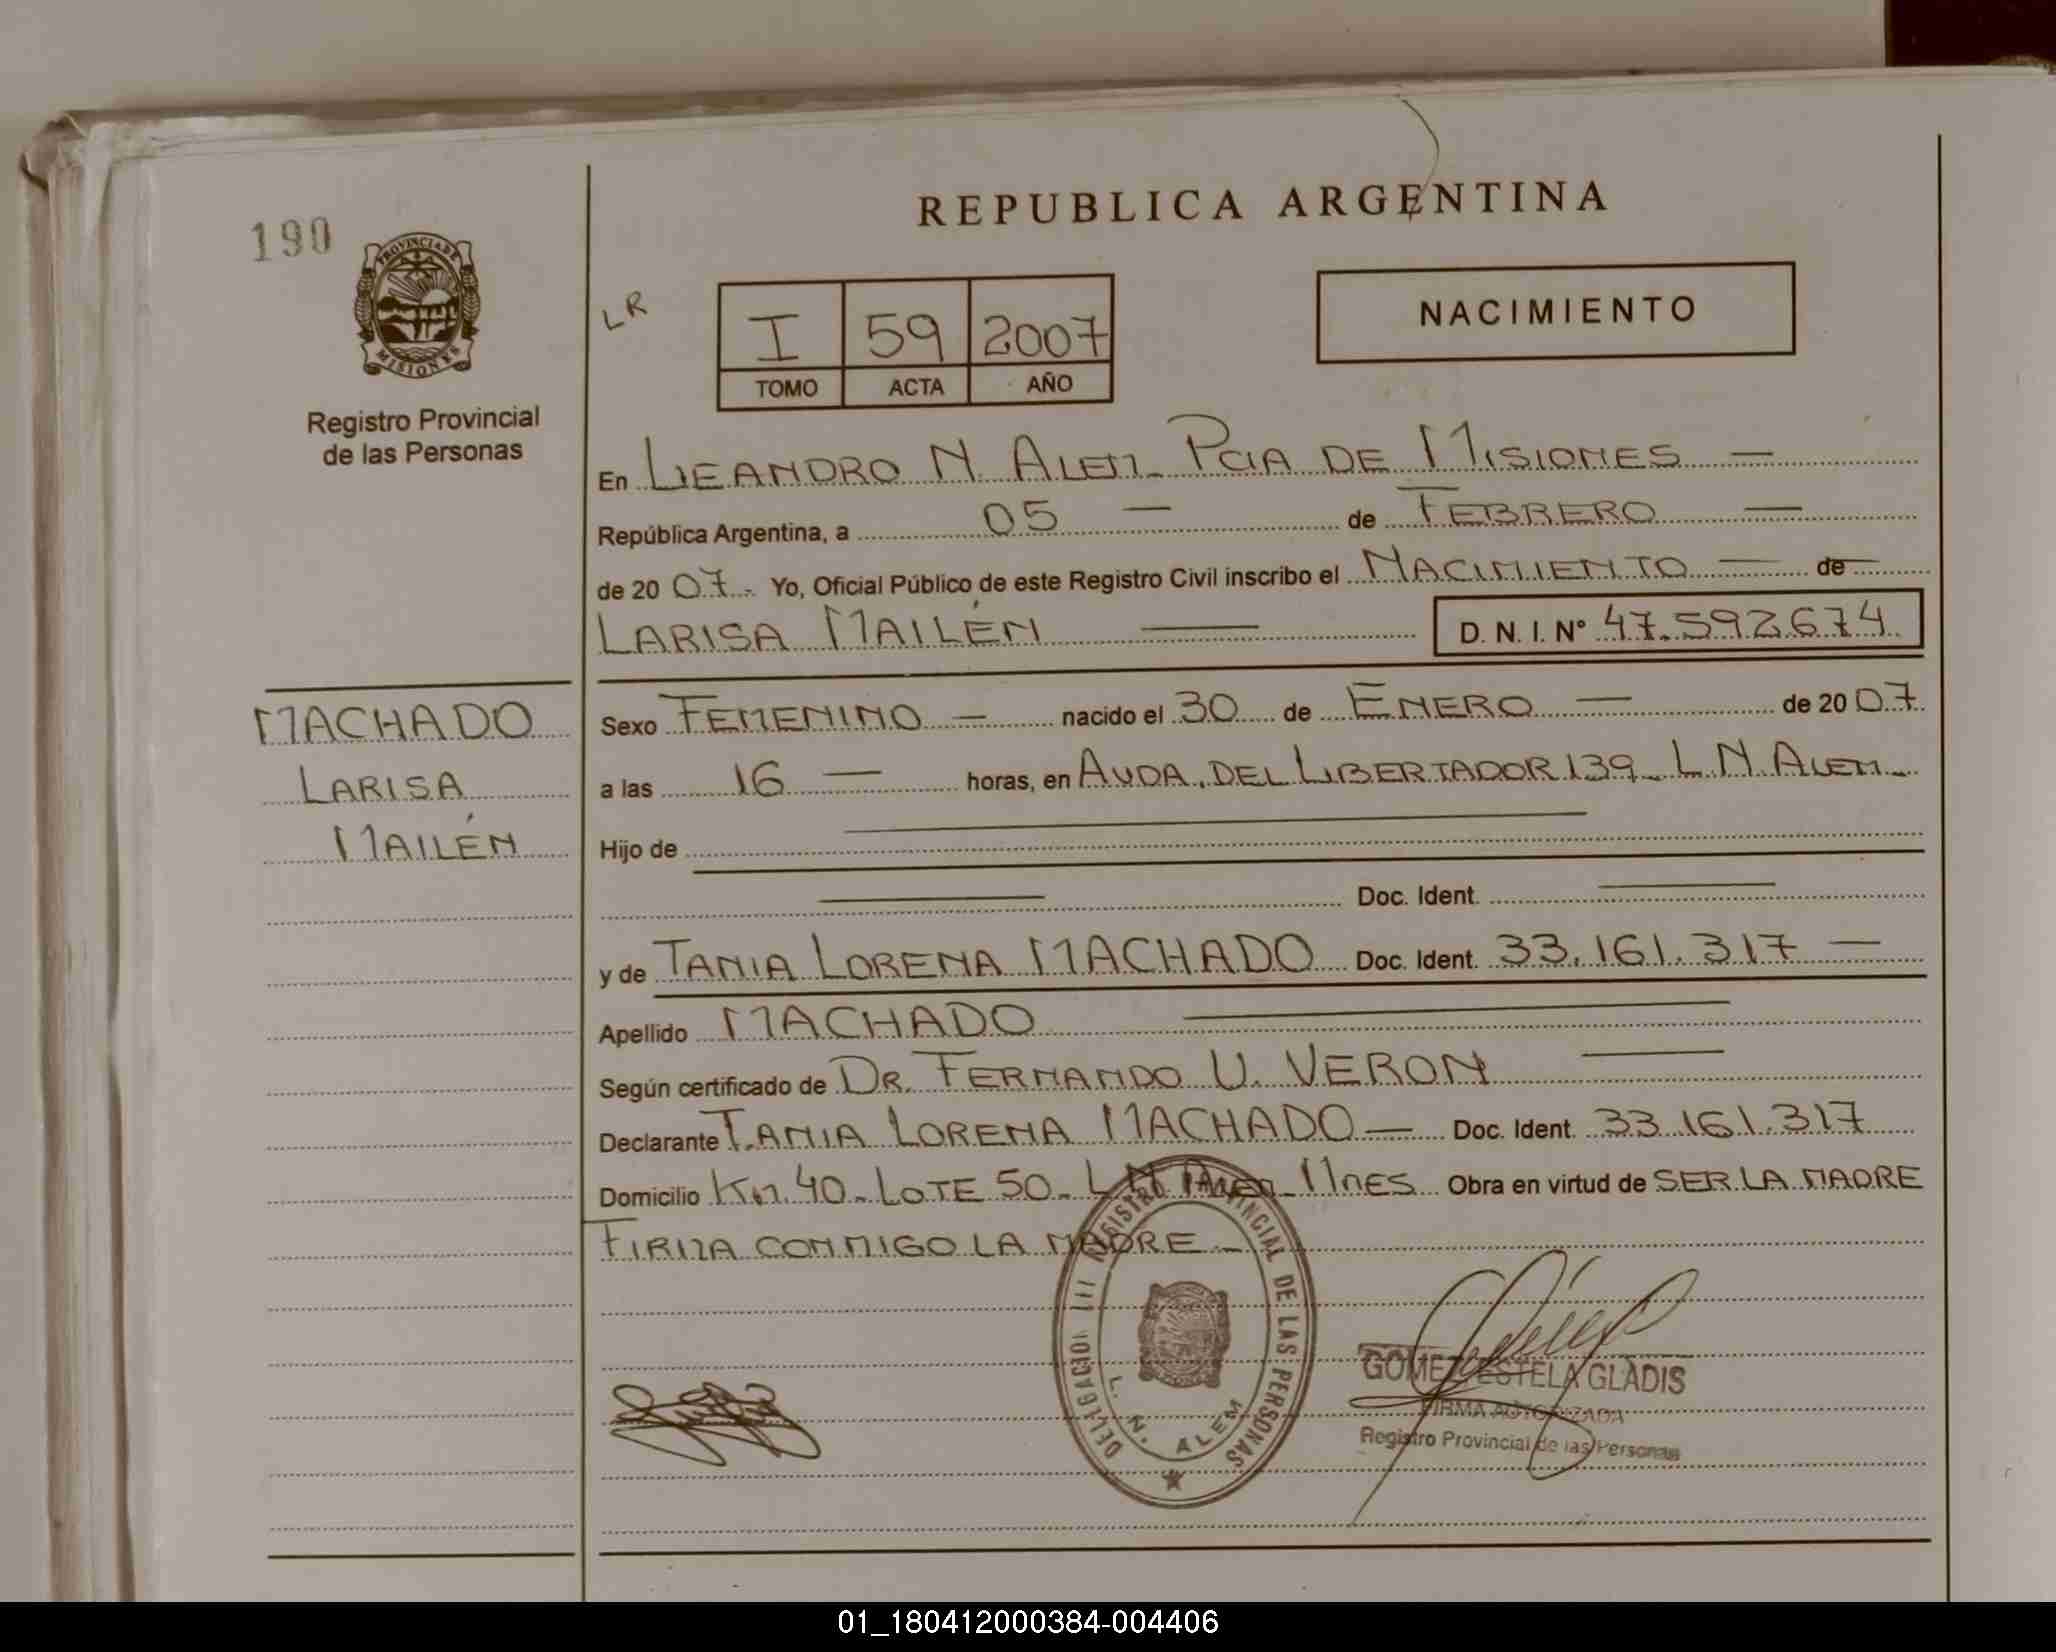 190
PROVINCIA DE
MISIONES
Registro Provincial
de las Personas
MACHADO
LARISA
MAILÉN
REPUBLICA ARGENTINA
LR
I 59 2007
TOMO ACTA AÑO
NACIMIENTO
En LEANDRO N. ALEM_ PCIA DE MISIONES —
República Argentina, a 05 — de FEBRERO —
de 20 07.- Yo, Oficial Público de este Registro Civil inscribo el NACIMIENTO — de
LARISA MAILÉN — D. N. I. Nº 47.592674
Sexo FEMENINO — nacido el 30 de ENERO — de 20 07
a las 16 — horas, en AVDA. DEL LIBERTADOR 139_ L N ALEM_
Hijo de —
— Doc. Ident. —
y de TANIA LORENA MACHADO Doc. Ident. 33.161.317 —
Apellido MACHADO —
Según certificado de DR. FERNANDO U. VERON —
Declarante TANIA LORENA MACHADO — Doc. Ident. 33.161.317
Domicilio Km 40_ LOTE 50_ L N Alem_ MnES Obra en virtud de SER LA MADRE
FIRMA CONMIGO LA MADRE_
DELEGACION III REGISTRO PROVINCIAL DE LAS PERSONAS
L. N. ALEM
GOMEZ ESTELA GLADIS
FIRMA AUTORIZADA
Registro Provincial de las Personas
01_180412000384-004406